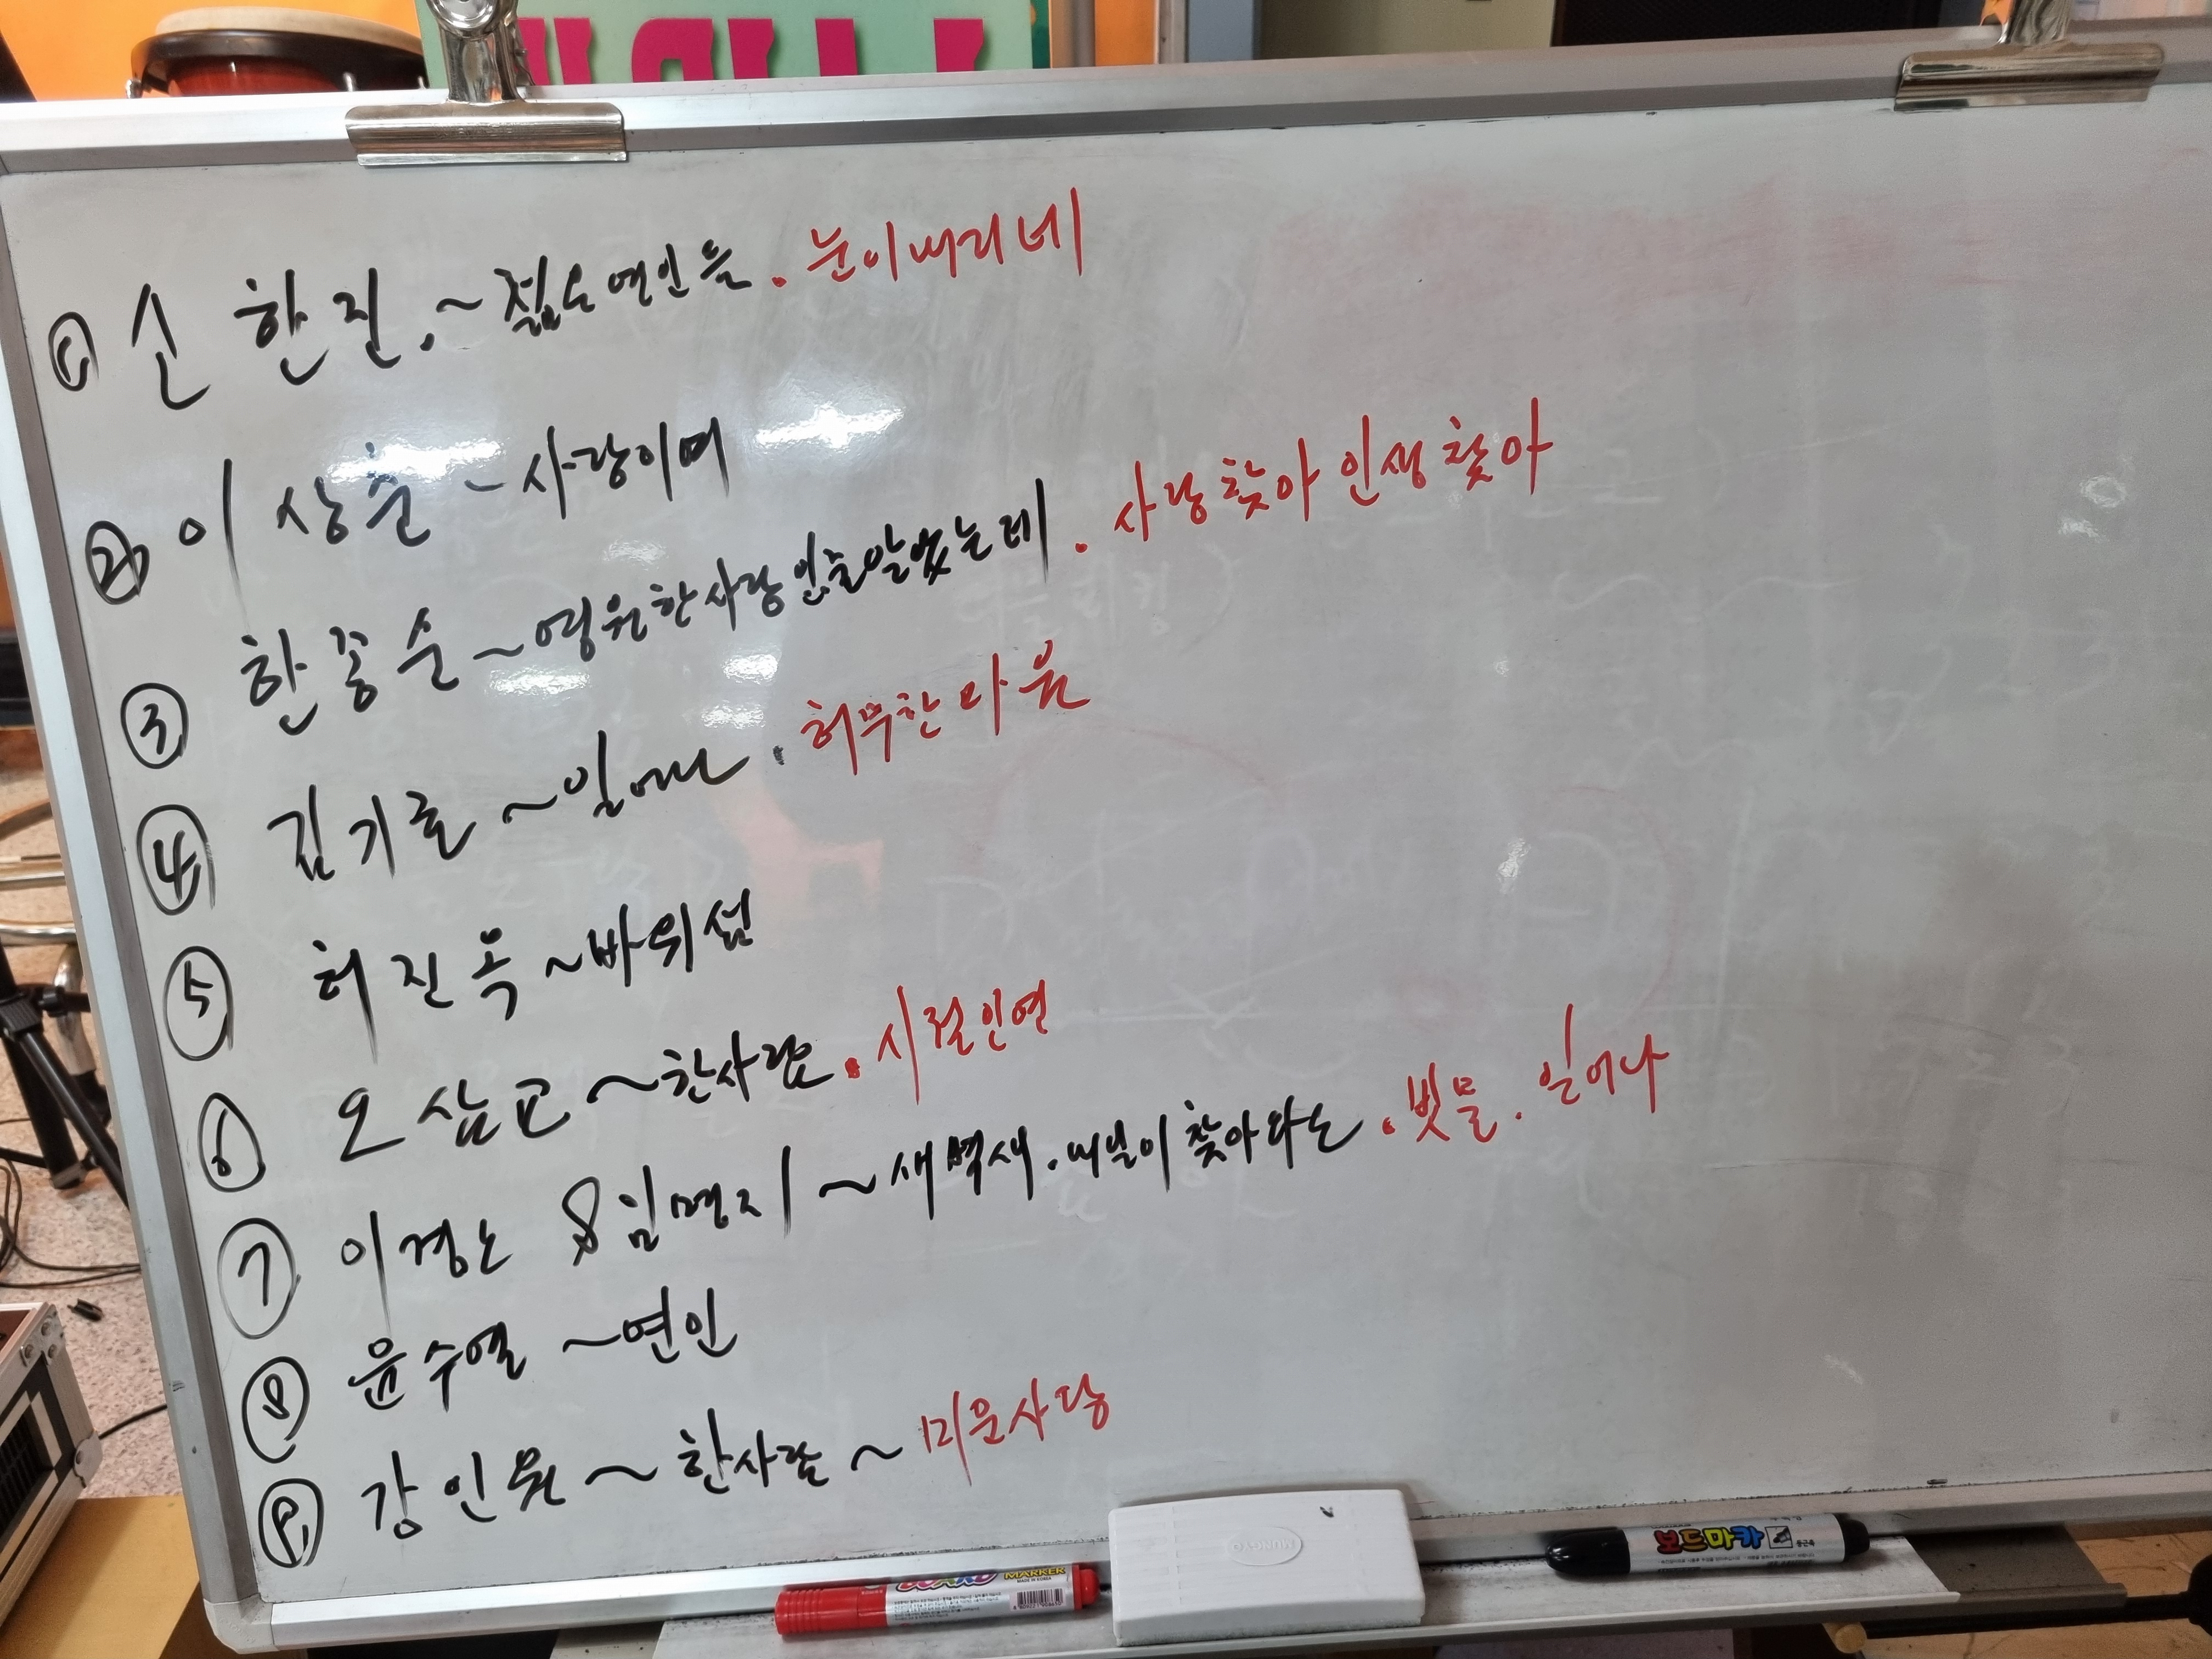 ① 신 한 진. ~ 젊은연인들 . 눈이내리네
② 이 상 훈 ~ 사랑이여
③ 한 꽁 순 ~ 영원한사랑인줄알았는데 . 사랑찾아인생찾아
④ 김 기 로 ~ . 허무한마음
⑤ 허 진 옥 ~ 바위섬
⑥ 오 삼 교 ~ 한사람 . 시절인연
⑦ 이경노 & 임명지 ~ 새벽새 . 내님이찾아와는 . 빗물 . 일어나
⑧ 윤수열 ~ 연인
⑨ 강인원 ~ 한사람 ~ 미운사랑
MUNGYO
MARKER
보드마카